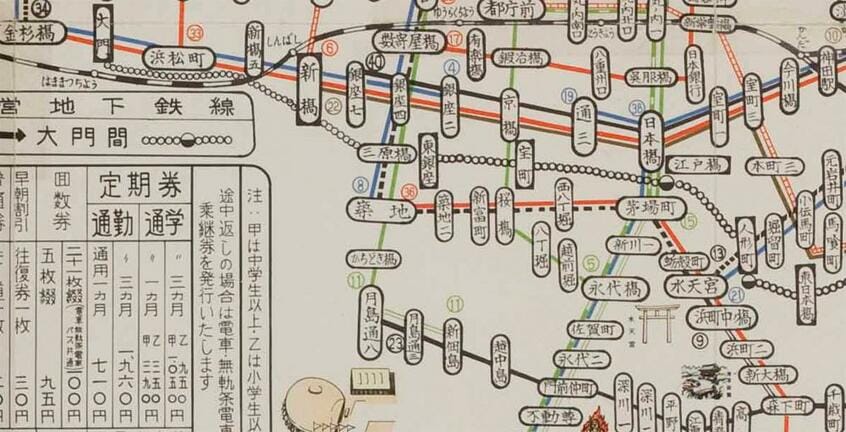 金杉橋
大門
33
浜松町
はままつちょう
新橋五
しんばし
6
新橋
22
銀座七
40
銀座四
数寄屋橋
17
有楽橋
ゆうらくちょう
都庁前
鍛冶橋
4
銀座二
京橋
八重洲口
呉服橋
日本銀行
19
通三
38
日本橋
室町一
室町三
今川橋
神田駅
かんだ
10
三原橋
東銀座
宝町
江戸橋
本町三
元岩井町
8
36
築地
築地二
新富町
桜橋
西八丁堀
茅場町
5
15
13
人形町
堀留町
小伝馬町
馬喰町
かちどき橋
八丁堀
越前堀
新川一
蛎殻町
水天宮
21
東日本橋
11
月島通八
月島通三
23
11
新佃島
越中島
5
永代橋
水天宮
浜町中橋
9
佐賀町
浜町二
永代二
門前仲町
新大橋
不動尊
深川一
森下町
千歳町
営地下鉄線
大門間
定期券
通勤
通学
回数券
早朝割引
〃三カ月
乙 九五〇円
甲一、〇五〇円
〃一カ月
乙 三五〇円
甲 三九〇円
〃三カ月
一、九六〇円
通用一カ月
七一〇円
二十一枚綴
(電車、無軌条電車、バス共通)
三〇〇円
五枚綴
九五円
往復券一枚
三〇円
注:甲は中学生以上・乙は小学生以
途中返しの場合は電車・無軌条電車
乗継券を発行いたします